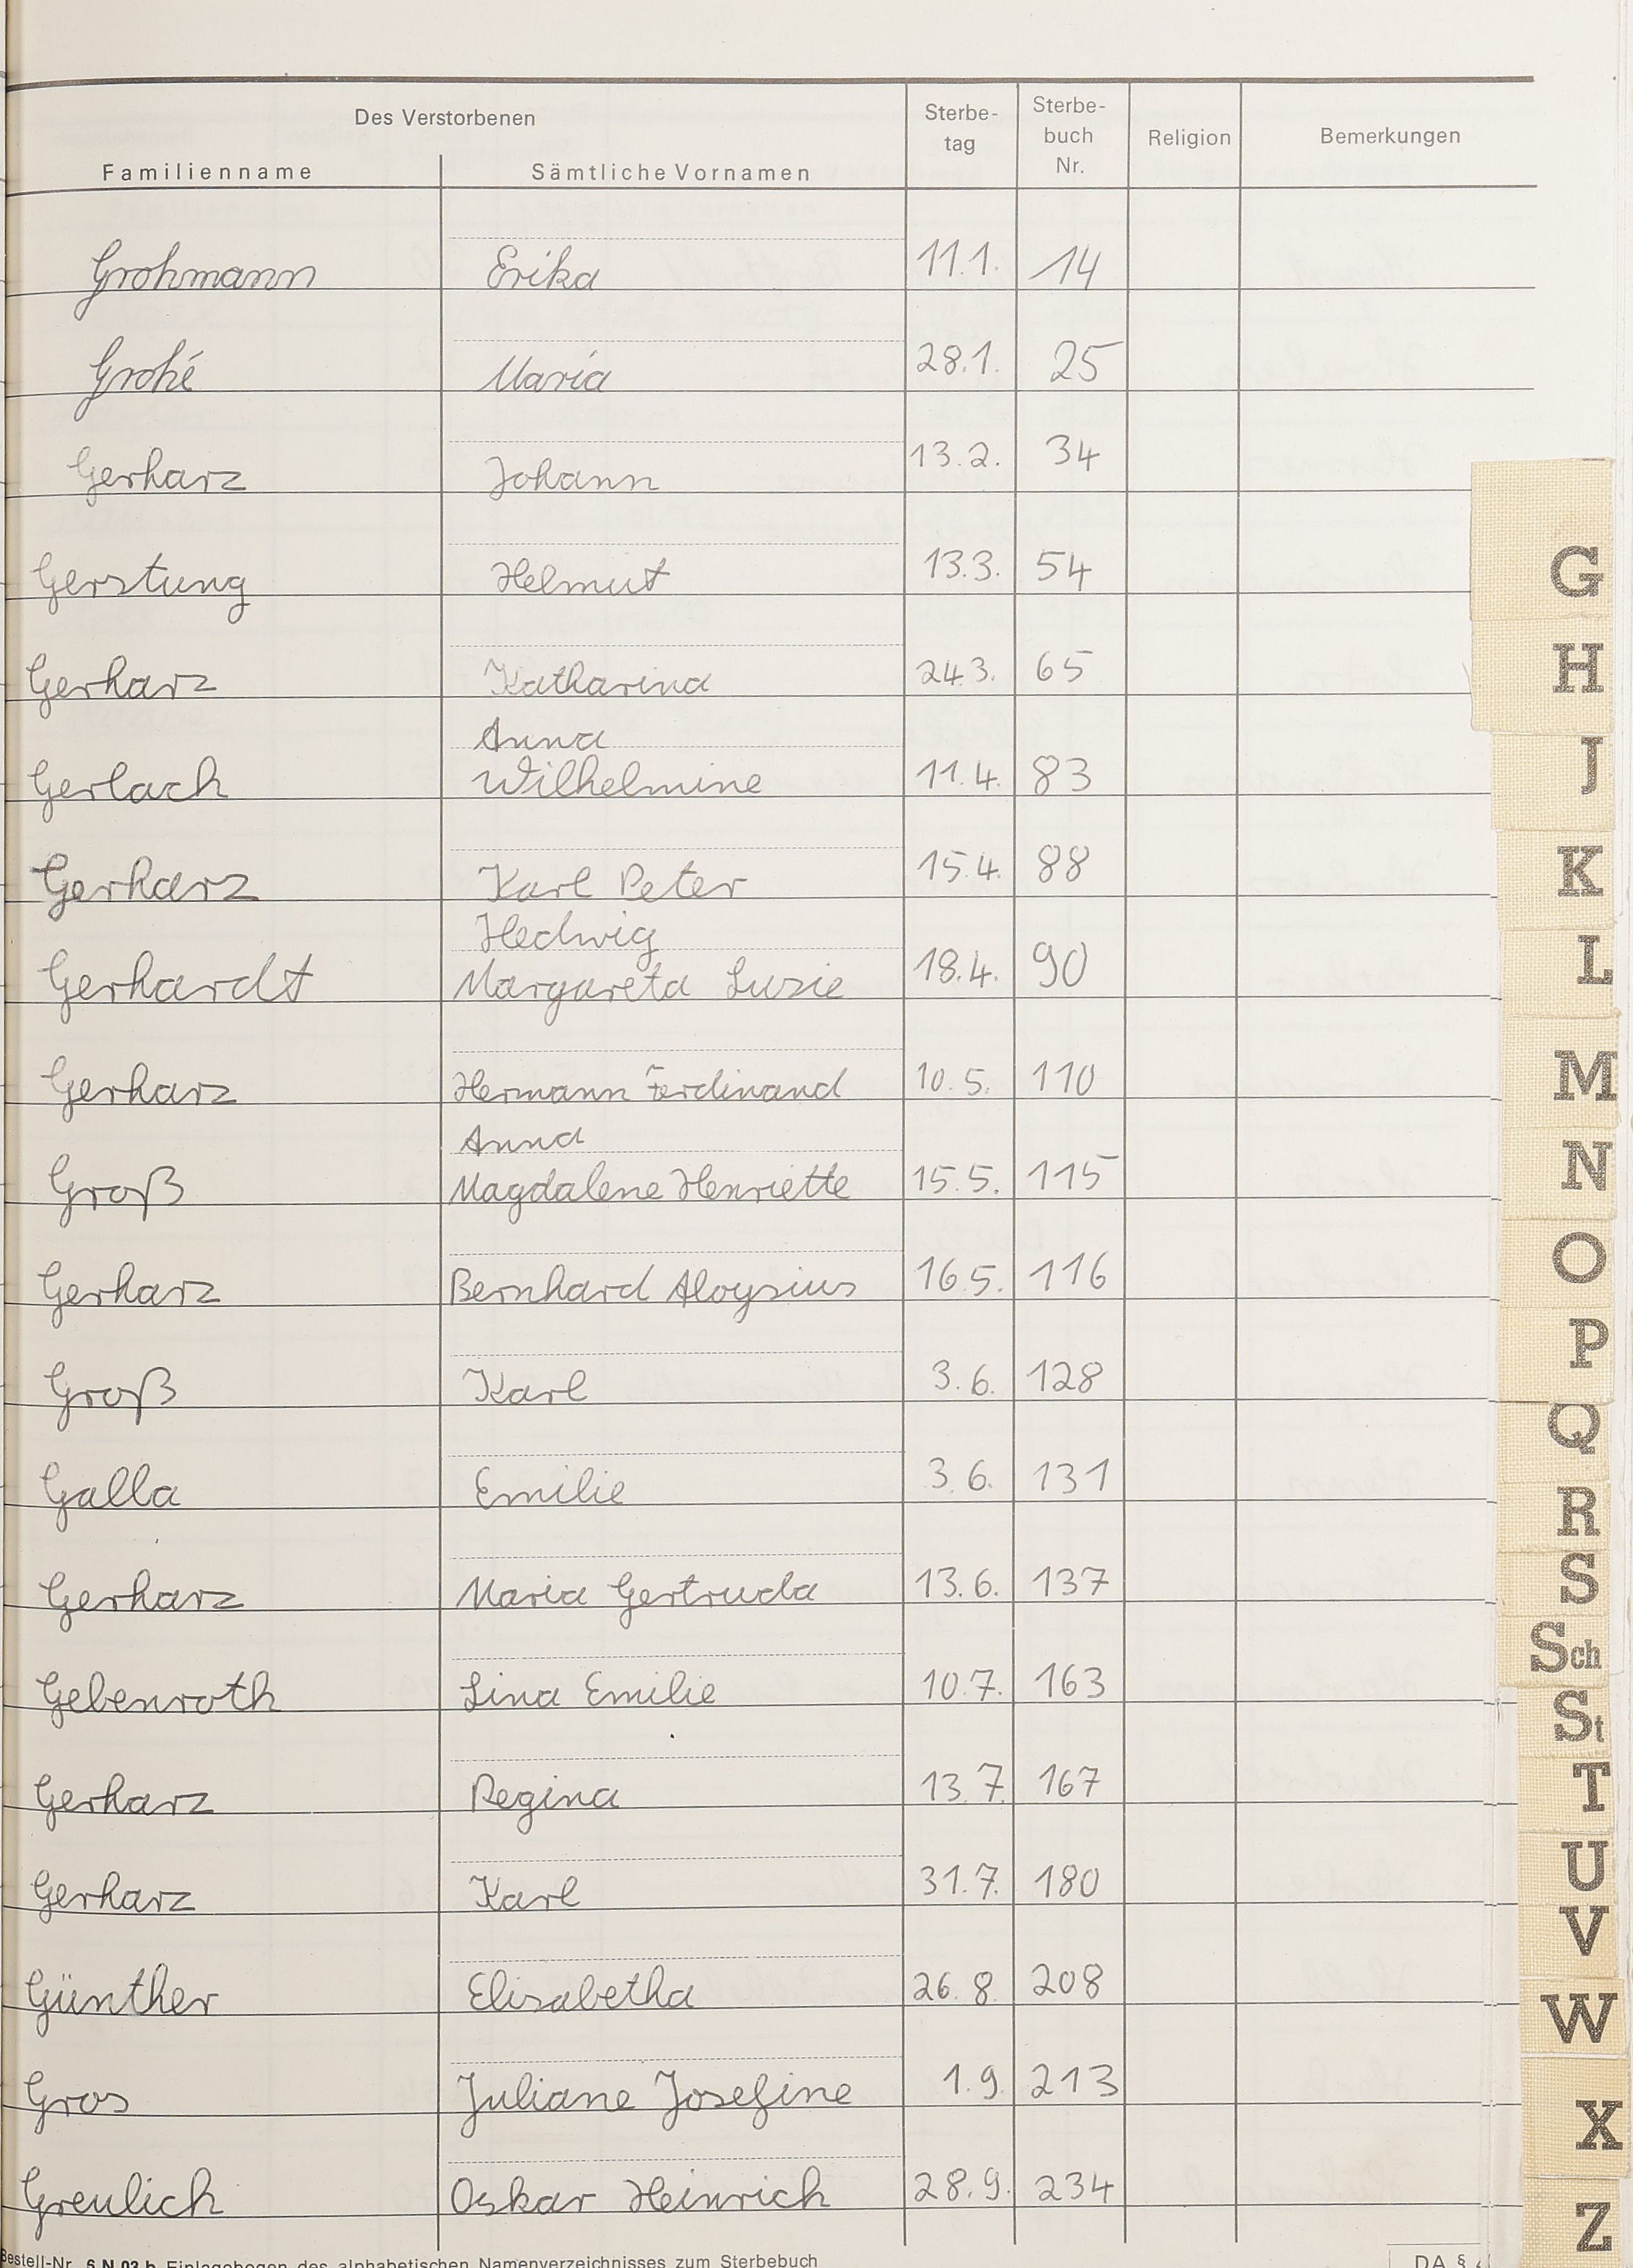 Des Verstorbenen
Familienname Sämtliche Vornamen Sterbe-tag Sterbe-buch Nr. Religion Bemerkungen
Grohmann Erika 11.1. 14
Grohé Maria 28.1. 25
Gerharz Johann 13.2. 34
Gerstung Helmut 13.3. 54
Gerharz Katharina 24.3. 65
Anna
Gerlach Wilhelmine 11.4. 83
Gerharz Karl Peter 15.4. 88
Hedwig
Gerhardt Margareta Luzie 18.4. 90
Gerharz Hermann Ferdinand 10.5. 110
Anna
Groß Magdalene Henriette 15.5. 115
Gerharz Bernhard Aloysius 16.5. 116
Groß Karl 3.6. 128
Galla Emilie 3.6. 131
Gerharz Maria Gertruda 13.6. 137
Gebenroth Lina Emilie 10.7. 163
Gerharz Regina 13.7. 167
Gerharz Karl 31.7. 180
Günther Elisabetha 26.8. 208
Gros Juliane Josefine 1.9. 213
Greulich Oskar Heinrich 28.9. 234
Bestell-Nr. 6 N 03 b Einlagebogen des alphabetischen Namenverzeichnisses zum Sterbebuch
DA §
G
H
J
K
L
M
N
O
P
Q
R
S
Sch
St
T
U
V
W
X
Z